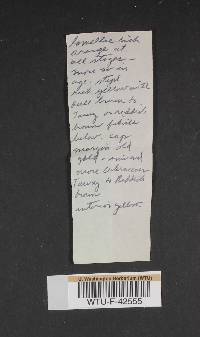 Lamellae rich
orange at
all stages -
more so in
age. stipe
rich yellow with
dull brown to
Tawny or reddish
brown fibrils
below. cap
margin old
gold - and
more
Tawny to Reddish
brown
interior yellow.
U. Washington Herbarium (WTU)
WTU-F-42555